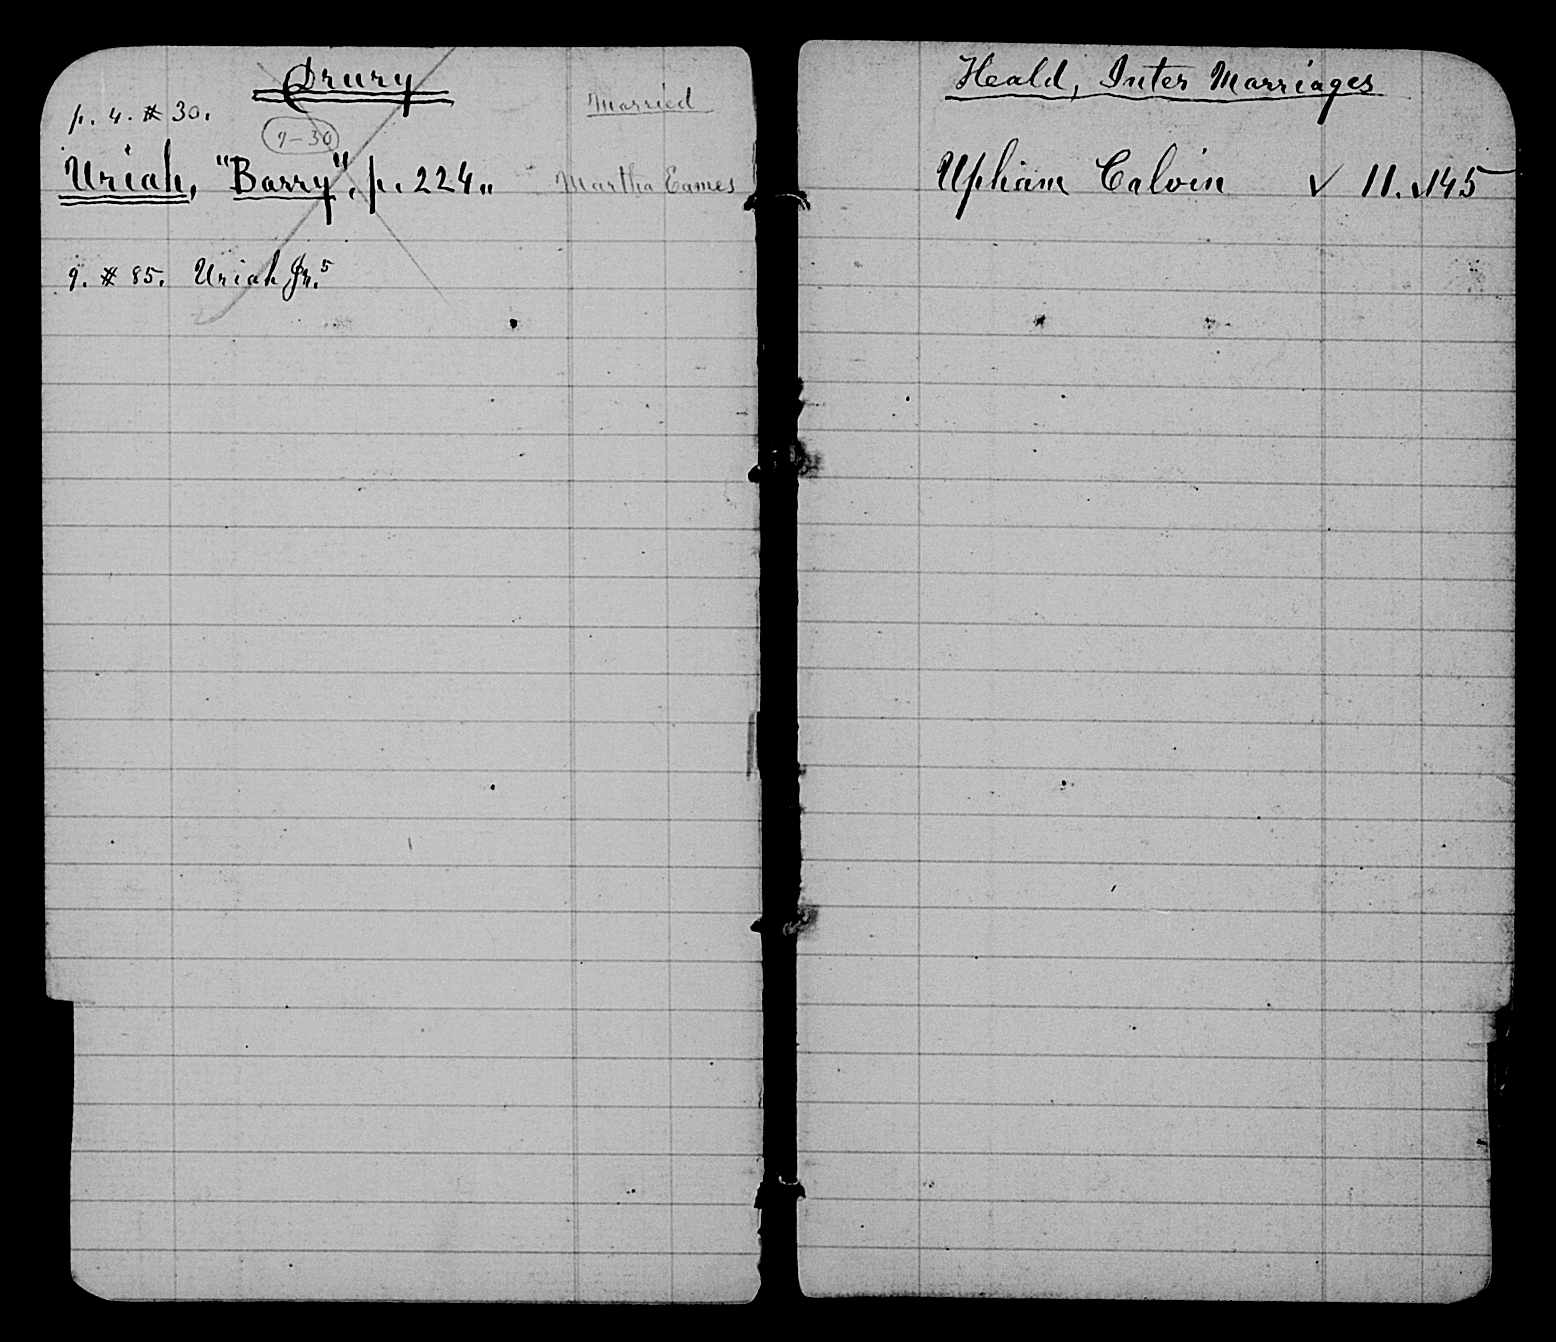 Drury
Married
p. 4. # 30.
9-30
Uriah, "Barry", p. 224.
Martha Eames
9. # 85. Uriah Jr.⁵
Heald, Inter Marriages
Upham Calvin ✓ 11. ✓145